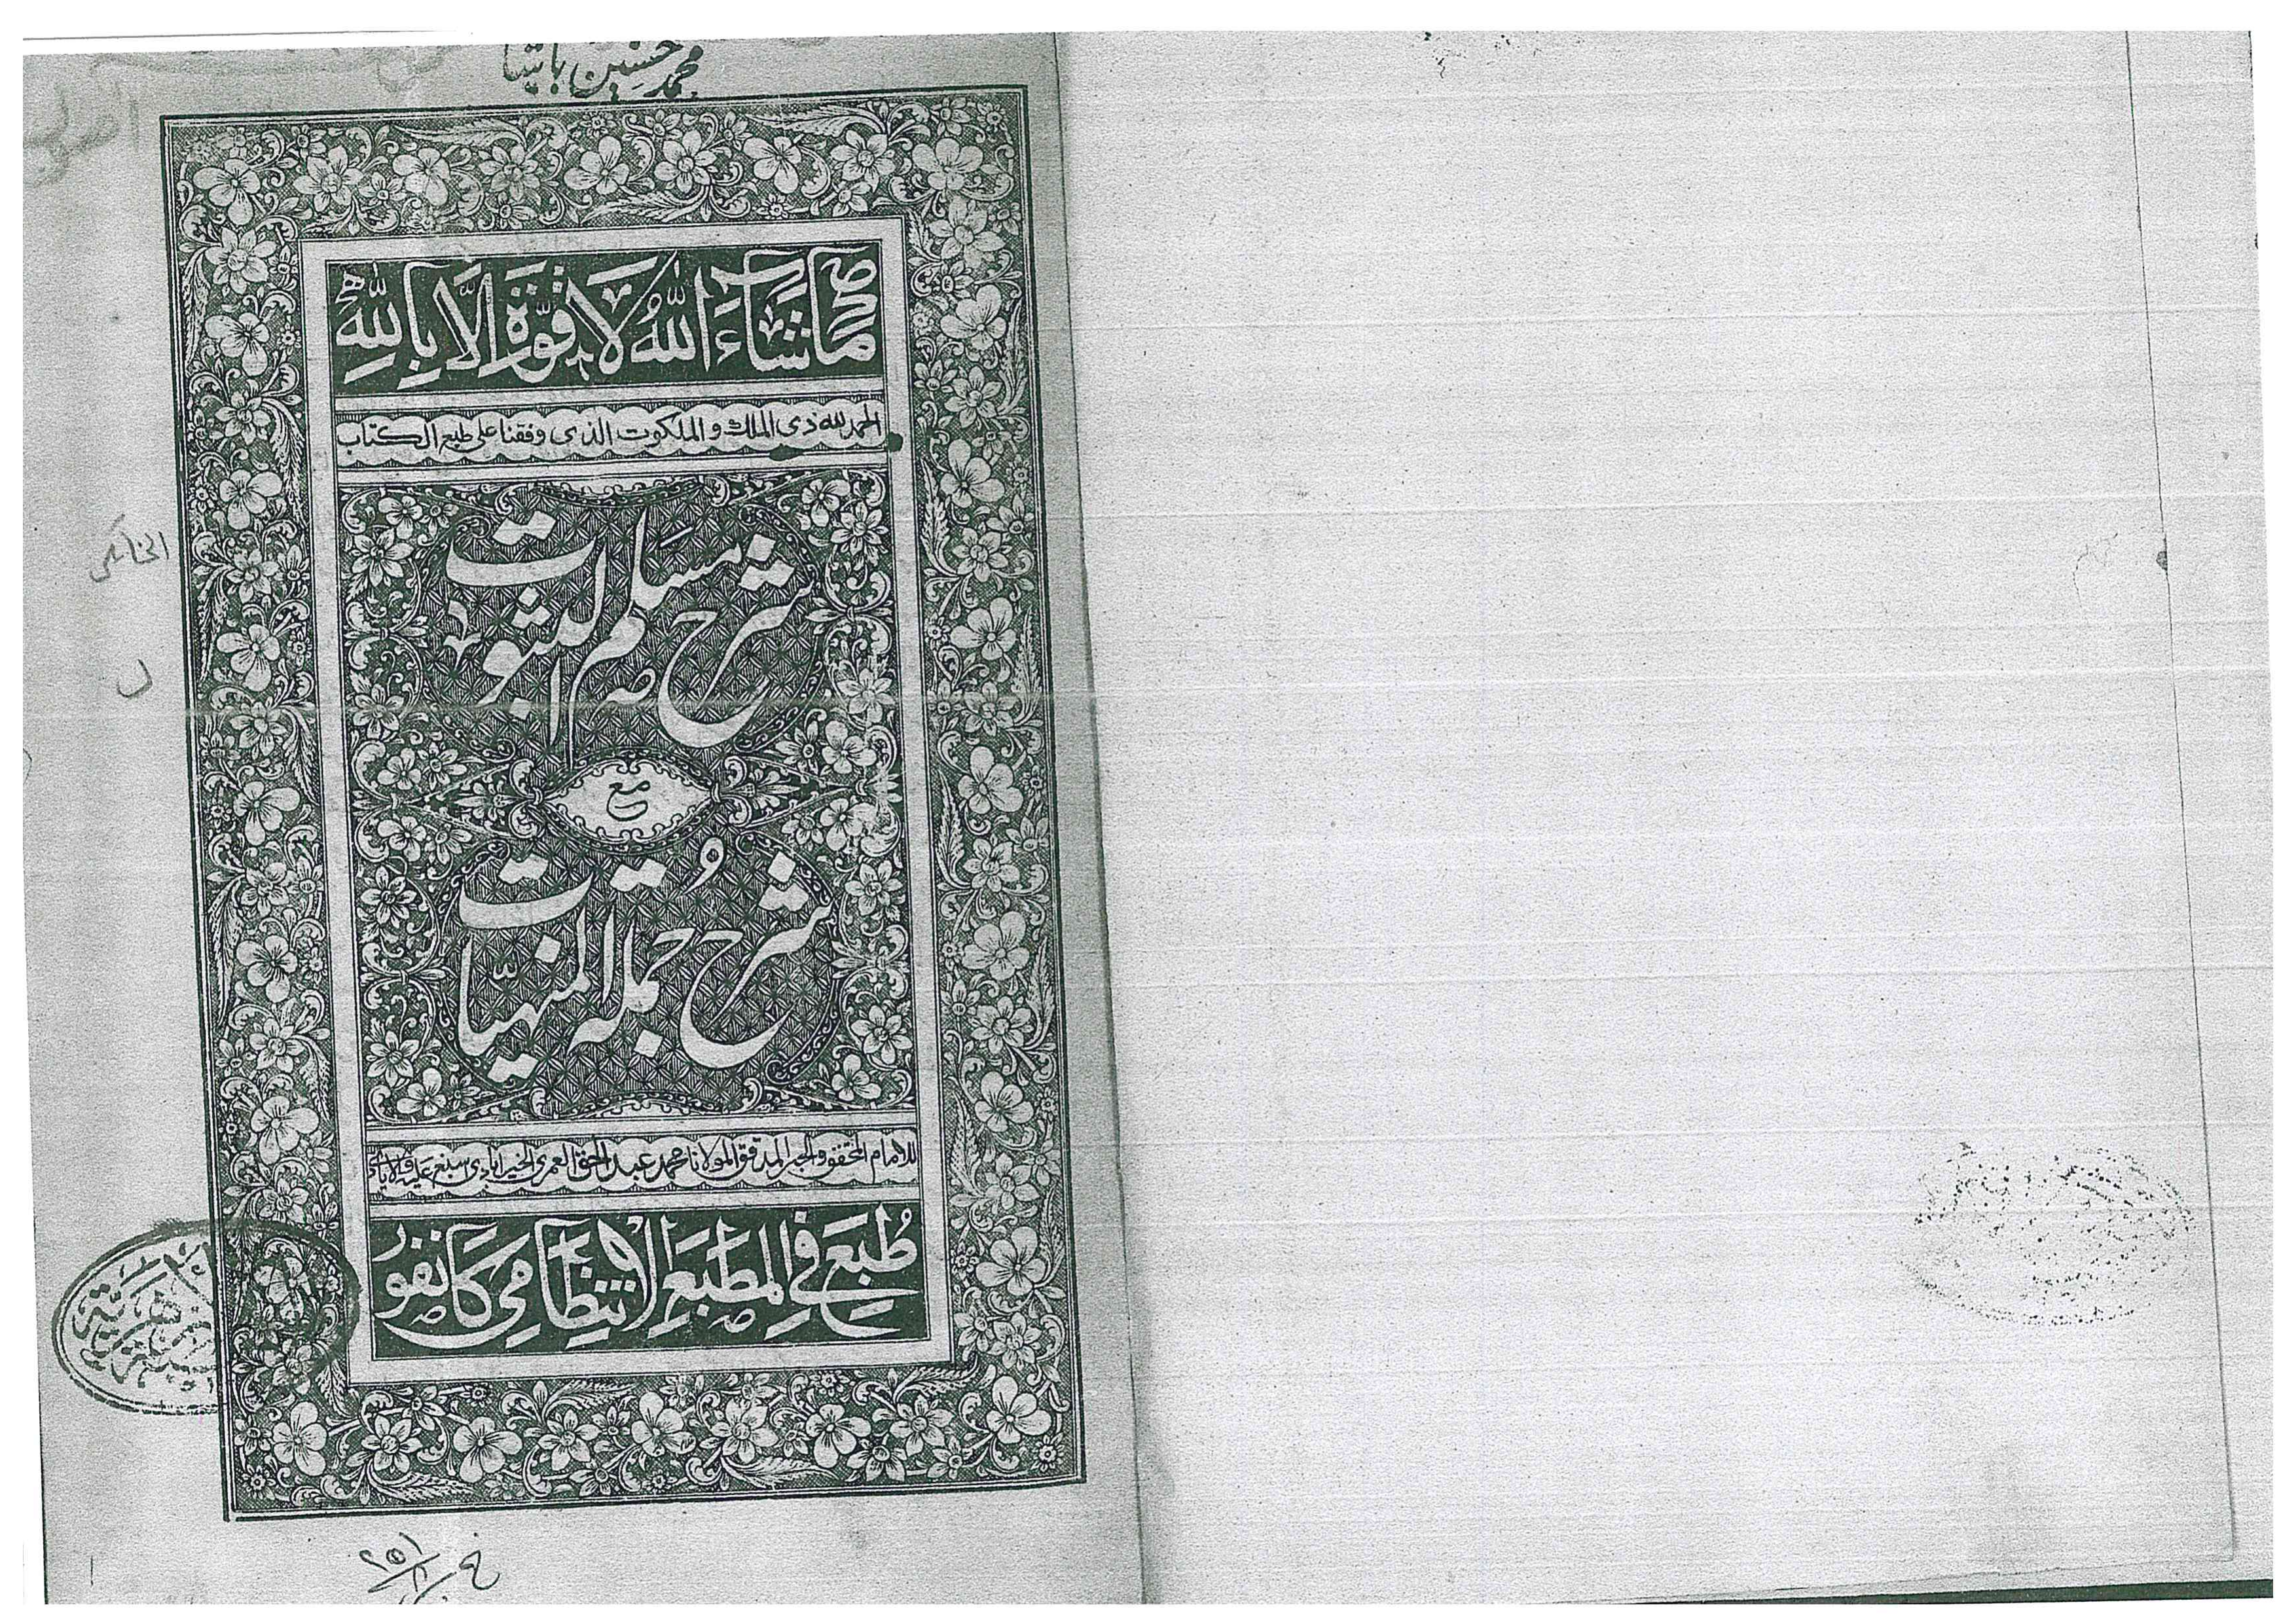 محمد حسين باشا
ما شَآءَ اللّٰهُ لَا قُوَّةَ اِلَّا بِاللّٰهِ
الحمد لله ذى الملك و الملكوت الذى وفقنا على طبع الكتاب
شرح مسلم الثبوت
مع
شرح جملة المنهيّات
للامام المحقق والحبر المدقق المولانا محمد عبد الحق العمرى الخيرابادى اسبغ عليه
طُبِعَ فِي المَطبَعِ الاِنتِظَامِي كَانفُور
٢٥١